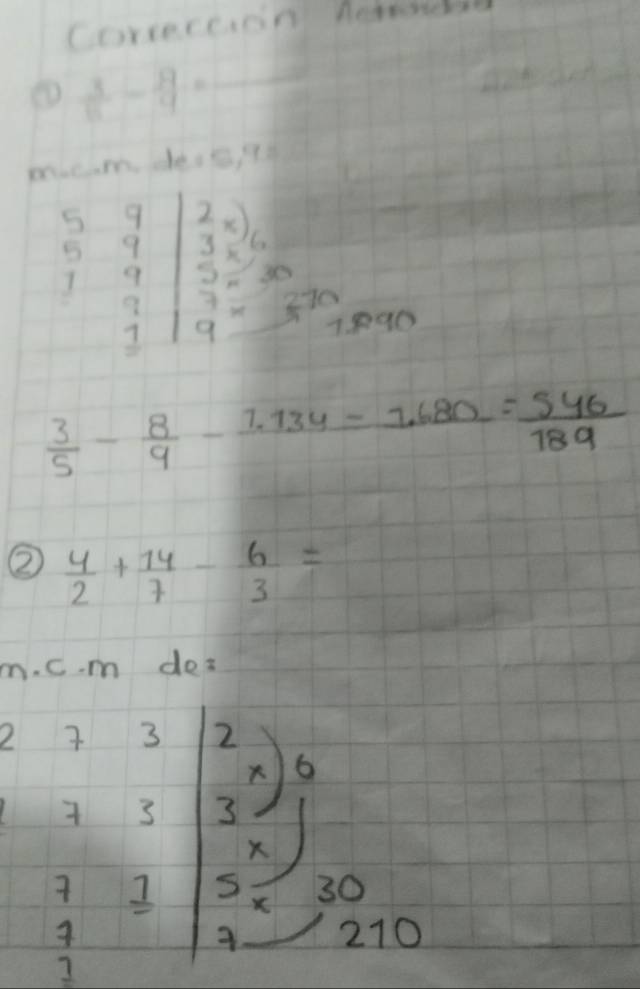 Corrección
① 3/5 - 8/9 =
m.c.m de: 5,9:
5 9 | 2 x
5 9 | 3 x 6
1 9 | 5 x 30
9 | 7 x 270
1 | 9 1.890
3/5 - 8/9 - 1.134 - 1.680 = 546/189
② 4/2 + 14/7 - 6/3 =
m.c.m de:
2 7 3 | 2
x 6
1 7 3 | 3
x
7 1 | 5 x 30
7 | 7 210
1